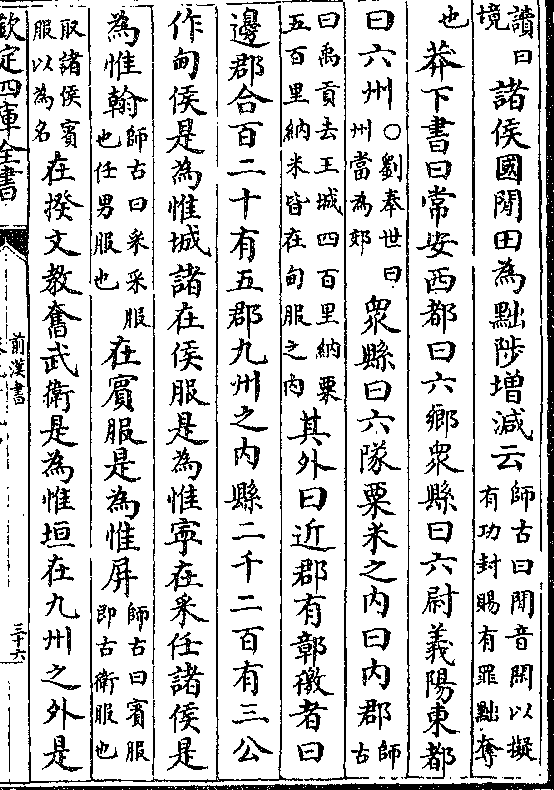 讀曰境諸侯國閒田為黜陟增減云師古曰閒音閑以擬有功封賜有罪黜奪
也莽下書曰常安西都曰六鄉衆縣曰六尉義陽東都
曰六州○劉奉世曰州當為郊衆縣曰六隊粟米之内曰内郡師古
曰禹貢去王城四百里納粟五百里納米皆在甸服之内其外曰近郡有鄣徼者曰
邊郡合百二十有五郡九州之内縣二千二百有三公
作甸侯是為惟城諸在侯服是為惟寧在采任諸侯是
為惟翰師古曰采采服也任男服也在賓服是為惟屏師古曰賓服即古衛服也
取諸侯賓服以為名在揆文教奮武衛是為惟垣在九州之外是
欽定四庫全書
前漢書
三十六